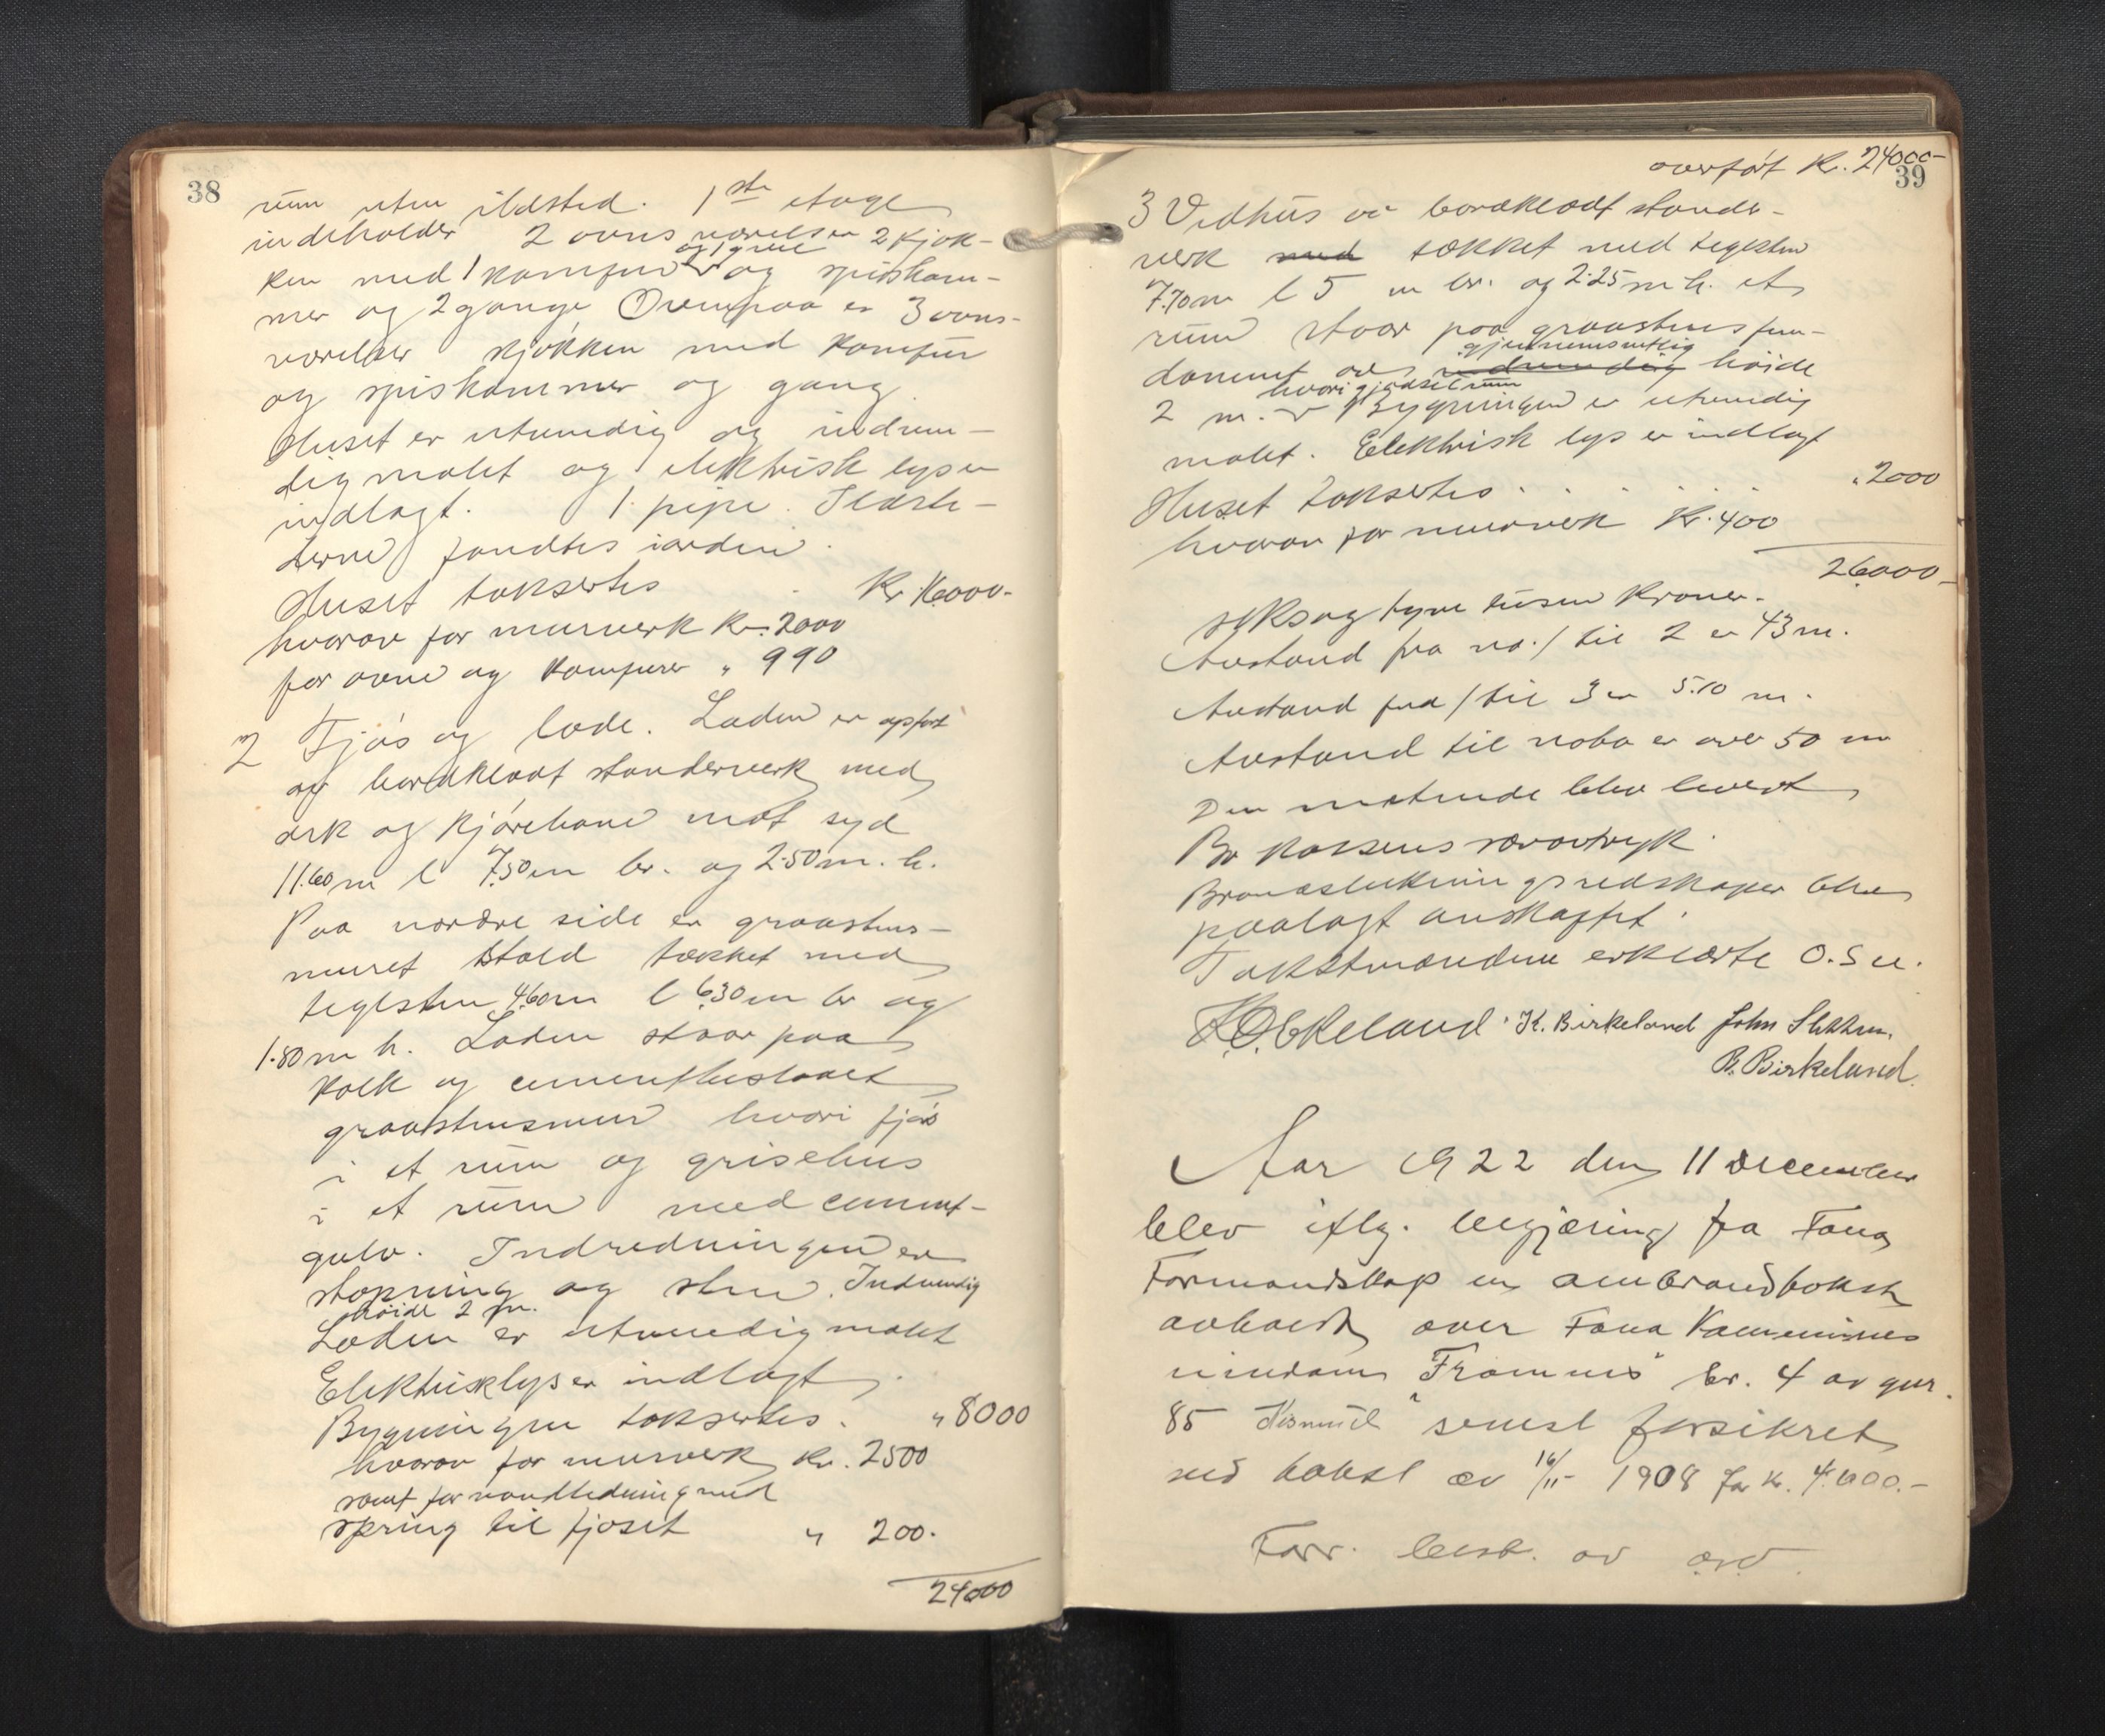 38
rum uten ildsted. 1ste etage
indeholder 2 ovns værelser 2 kjøk-
og 1 grue
ken med 1 komfur og spiskam-
mer og 2 gange Ovenpaa er 3 ovns-
værelser kjøkken med komfur
og spiskammer og gang
Huset er utvendig og indven-
dig malet og elektrisk lys er
indlagt. 1 pipe. Ildste-
derne fandtes iorden.
Huset taksertes Kr 16000.-
hvorav for murverk Kr. 2000
for ovne og komfurer " 990
2 Fjøs og lade. Laden er opført
av bordklædt standerverk med
ark og kjørebane mot syd
11.60 m l 7.50 m br. og 2.50 m. h.
Paa nordre side er graastens-
muret stald tækket med
teglsten 4.60 m l 6.30 m br og
1.80 m h. Laden staar paa
kalk og cementbeslaaet
graastensmur hvori fjøs
i et rum og grisehus
i et rum med cement-
gulv. Indredningen er
støpning og sten. Indvendig
høide 2 m.
Laden er utvendig malet
Elektrisk lys er indlagt.
Bygningen taksertes. " 8000
hvorav for murverk Kr. 2500
samt for vandledning med
spring til fjøset " 200.
24000
overført Kr. 24000-
39
3 Vedhus av bordklædt stander-
verk med tækket med teglsten
7.70 m l 5 m br. og 2.25 m h. et
rum staar paa graastens fun-
gjennemsnitlig
dament av indvendig høide
hvori gjødselrum
2 m. Bygningen er utvendig
malet. Elektrisk lys er indlagt
Huset taksertes . . . . . " 2000
hvorav for murverk Kr. 400
26000-
seksogtyve tusen Kroner.
Avstand fra no. 1 til 2 er 43 m.
Avstand fra 1 til 3 er 5.10 m.
Avstand til nabo er over 50 m
Den møtende blev levert
Br kassens særavtryk.
Brandsluknings redskaper blev
paalagt anskaffet.
Takstmændene erklærte O.S.u.
K. O. Ekeland. K. Birkeland John Slettten.
B. Birkeland.
Aar 1922 den 11 December
blev iflg. begjæring fra Fana
Formandskap en ambrandtakst
avholdt over Fana Kommunes
eiendom "Framnes" br. 4 av gnr.
85 senest forsikret
ved takst av 16/11- 1908 for kr. 4.000.-
Forr. best. av